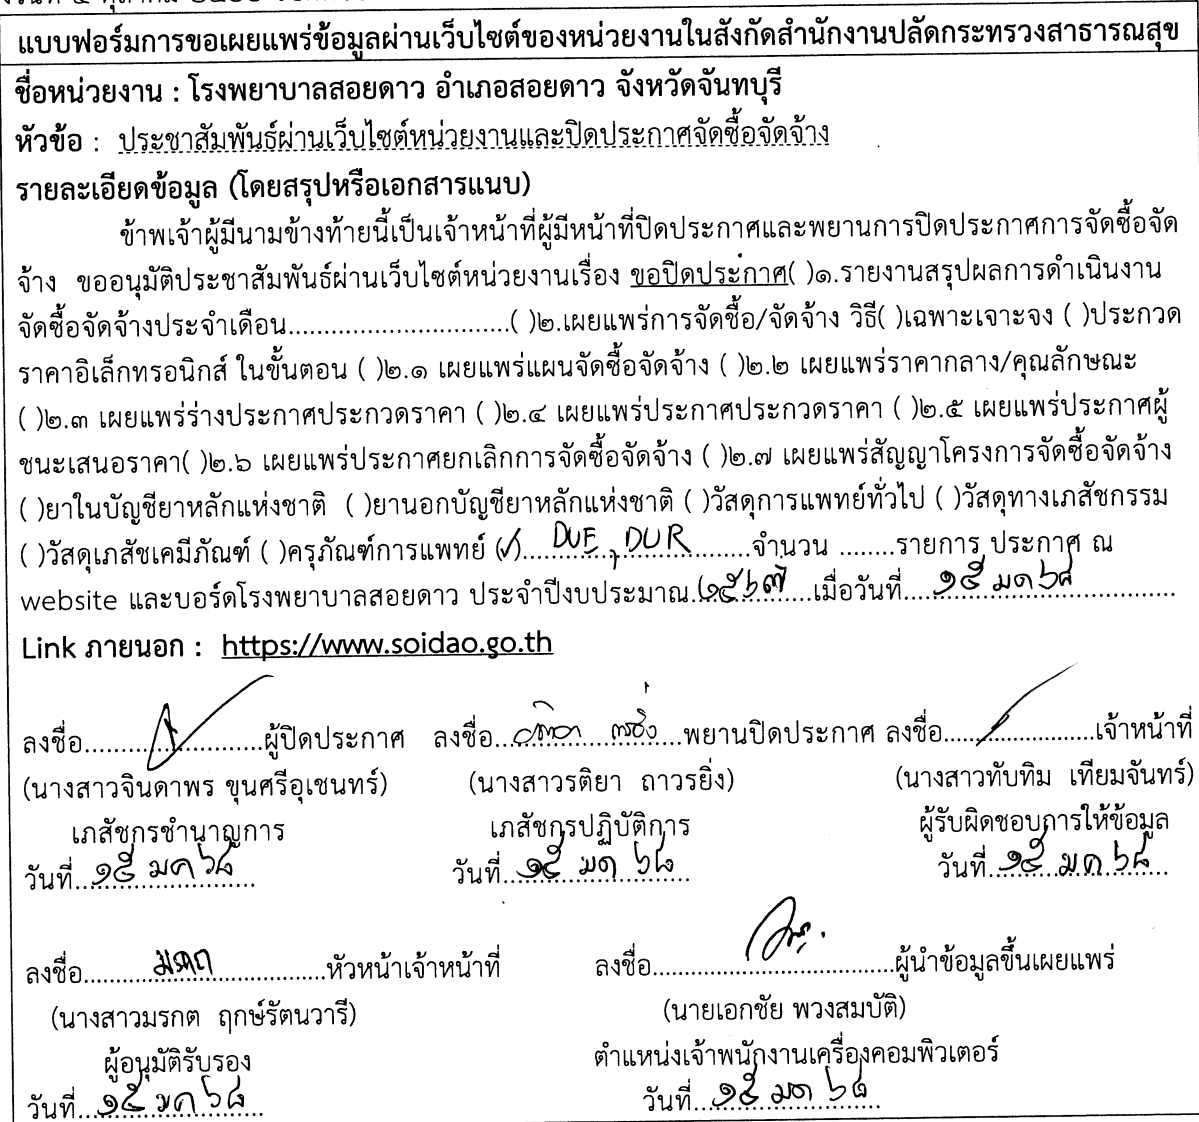 แบบฟอร์มการขอเผยแพร่ข้อมูลผ่านเว็บไซต์ของหน่วยงานในสังกัดสำนักงานปลัดกระทรวงสาธารณสุข
ชื่อหน่วยงาน : โรงพยาบาลสอยดาว อำเภอสอยดาว จังหวัดจันทบุรี
หัวข้อ : ประชาสัมพันธ์ผ่านเว็บไซต์หน่วยงานและปิดประกาศจัดซื้อจัดจ้าง
รายละเอียดข้อมูล (โดยสรุปหรือเอกสารแนบ)
ข้าพเจ้าผู้มีนามข้างท้ายนี้เป็นเจ้าหน้าที่ผู้มีหน้าที่ปิดประกาศและพยานการปิดประกาศการจัดซื้อจัด
จ้าง ขออนุมัติประชาสัมพันธ์ผ่านเว็บไซต์หน่วยงานเรื่อง ขอปิดประกาศ( )๑.รายงานสรุปผลการดำเนินงาน
จัดซื้อจัดจ้างประจำเดือน...............................( )๒.เผยแพร่การจัดซื้อ/จัดจ้าง วิธี( )เฉพาะเจาะจง ( )ประกวด
ราคาอิเล็กทรอนิกส์ ในขั้นตอน ( )๒.๑ เผยแพร่แผนจัดซื้อจัดจ้าง ( )๒.๒ เผยแพร่ราคากลาง/คุณลักษณะ
( )๒.๓ เผยแพร่ร่างประกาศประกวดราคา ( )๒.๔ เผยแพร่ประกาศประกวดราคา ( )๒.๕ เผยแพร่ประกาศผู้
ชนะเสนอราคา( )๒.๖ เผยแพร่ประกาศยกเลิกการจัดซื้อจัดจ้าง ( )๒.๗ เผยแพร่สัญญาโครงการจัดซื้อจัดจ้าง
( )ยาในบัญชียาหลักแห่งชาติ ( )ยานอกบัญชียาหลักแห่งชาติ ( )วัสดุการแพทย์ทั่วไป ( )วัสดุทางเภสัชกรรม
( )วัสดุเภสัชเคมีภัณฑ์ ( )ครุภัณฑ์การแพทย์ (✓)....DUE, DUR.........จำนวน ........รายการ ประกาศ ณ
website และบอร์ดโรงพยาบาลสอยดาว ประจำปีงบประมาณ.๒๕๖๗....เมื่อวันที่....๑๕ มค ๖๘..............
Link ภายนอก : https://www.soidao.go.th
ลงชื่อ.........................ผู้ปิดประกาศ ลงชื่อ.........................พยานปิดประกาศ ลงชื่อ.........................เจ้าหน้าที่
(นางสาวจินดาพร ขุนศรีอุเชนทร์) (นางสาวรติยา ถาวรยิ่ง) (นางสาวทับทิม เทียมจันทร์)
เภสัชกรชำนาญการ เภสัชกรปฏิบัติการ ผู้รับผิดชอบการให้ข้อมูล
วันที่..๑๕ มค ๖๘... วันที่...๑๕ มค ๖๘... วันที่...๑๕ มค ๖๘...
ลงชื่อ..........มรกต...............หัวหน้าเจ้าหน้าที่ ลงชื่อ.................................ผู้นำข้อมูลขึ้นเผยแพร่
(นางสาวมรกต ฤกษ์รัตนวารี) (นายเอกชัย พวงสมบัติ)
ผู้อนุมัติรับรอง ตำแหน่งเจ้าพนักงานเครื่องคอมพิวเตอร์
วันที่...๑๕ มค ๖๘... วันที่...๑๕ มค ๖๘...